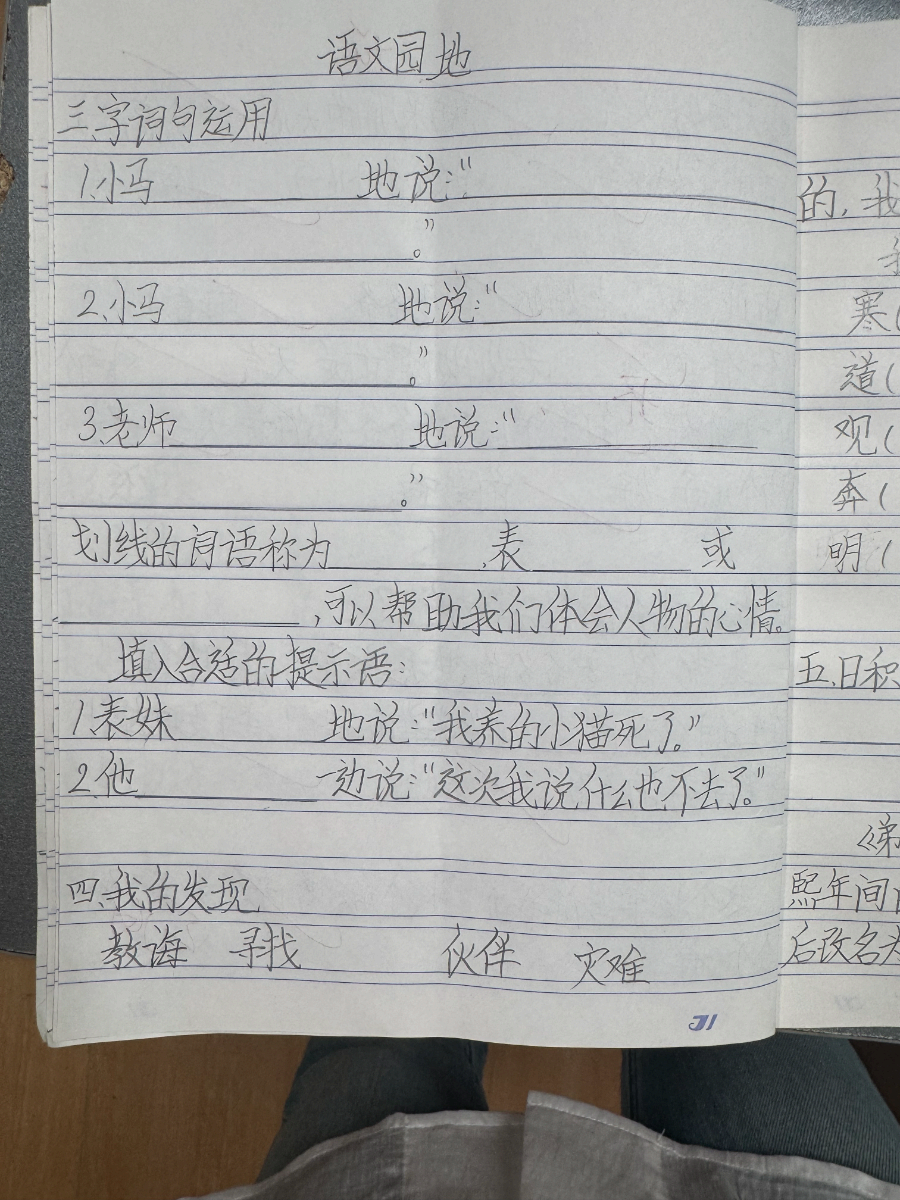 语文园地
三、字词句运用
1.小马________地说:“________
________。”
2.小马________地说:“________
________。”
3.老师________地说:“________
________。”
划线的词语称为________,表________或
________,可以帮助我们体会人物的心情。
填入合适的提示语:
1.表妹________地说:“我养的小猫死了。”
2.他________一边说:“这次我说什么也不去了。”
四、我的发现
教诲 寻找 伙伴 灾难
31
的,我
寒(
道(
观(
奔(
明(
五、日积
熙年间
后改名